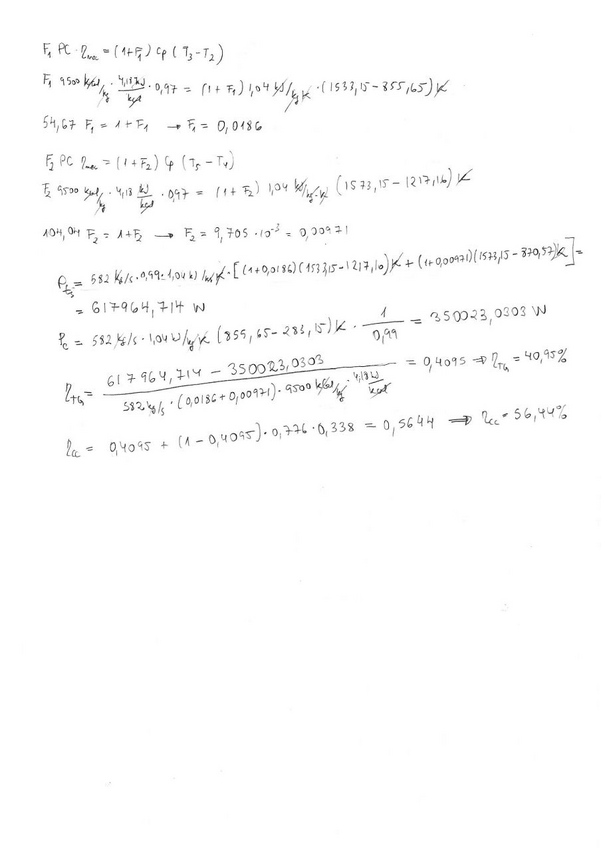 F₁ PC · η_mec = (1+F₁) Cp (T₃-T₂)
F₁ 9500 kcal/kg · 4,18 kJ/kcal · 0,97 = (1+F₁) 1,04 kJ/kg K · (1533,15-855,65) K
54,67 F₁ = 1+F₁ → F₁ = 0,0186
F₂ PC η_mec = (1+F₂) Cp (T₅-T₄)
F₂ 9500 kcal/kg · 4,18 kJ/kcal · 0,97 = (1+F₂) 1,04 kJ/kg·K (1573,15-1217,16) K
104,04 F₂ = 1+F₂ → F₂ = 9,705 · 10⁻³ = 0,00971
= 582 kg/s · 0,99 · 1,04 kJ/kg K · [(1+0,0186)(1533,15-1217,16) K + (1+0,00971)(1573,15-870,57) K] =
= 617964,714 W
P_c = 582 kg/s · 1,04 kJ/kg K (855,65-283,15) K · 1/0,99 = 350023,0303 W
η_TG = (617964,714 - 350023,0303) / (582 kg/s · (0,0186+0,00971) · 9500 kcal/kg · 4,18 kJ/kcal) = 0,4095 ⇒ η_TG = 40,95%
η_cc = 0,4095 + (1-0,4095) · 0,776 · 0,338 = 0,5644 ⇒ η_cc = 56,44%